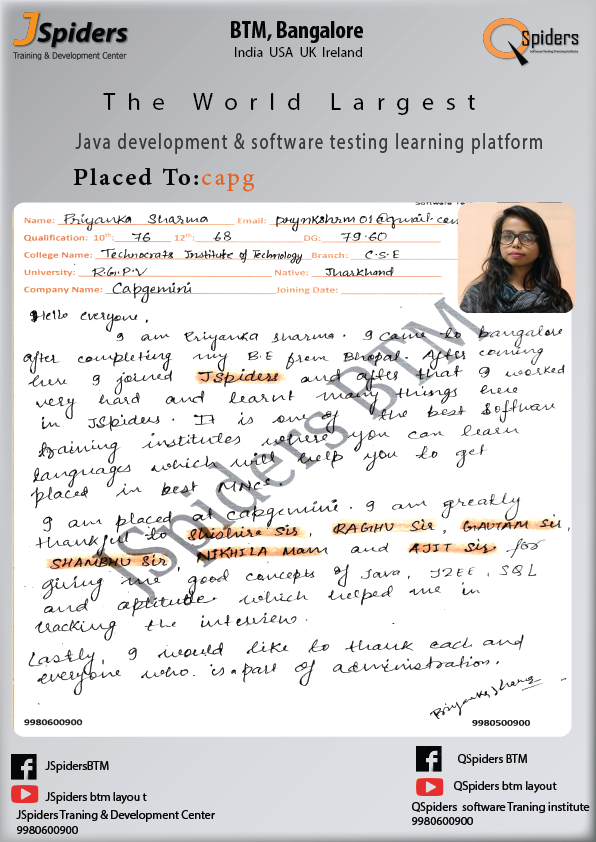 JSpiders
Training & Development Center
BTM, Bangalore
India USA UK Ireland
QSpiders
Software Testing Training Institute
The World Largest
Java development & software testing learning platform
Placed To:capg
Name: Priyanka Sharma Email: prynkshrm01@gmail.com
Qualification: 10th: 76 12th: 68 DG: 79.60
College Name: Technocrats Institute of Technology Branch: C.S.E
University: R.G.P.V Native: Jharkhand
Company Name: Capgemini Joining Date:
Hello everyone,
I am Priyanka Sharma. I came to bangalore
after completing my B.E from Bhopal. After coming
here I joined JSpiders and after that I worked
very hard and learnt many things here
in JSpiders. It is one of the best Software
training institutes where you can learn
languages which will help you to get
placed in best MNCs.
I am placed at capgemini. I am greatly
thankful to Shishire Sir, RAGHU Sir, GAUTAM Sir,
SHAMBHU Sir, NIKHILA Mam and AJIT Sir for
giving me good concepts of Java, J2EE, SQL
and aptitude which helped me in
cracking the interview.
Lastly, I would like to thank each and
everyone who is a part of administration.
Priyanka Sharma
JSpiders BTM
9980600900 9980500900
JSpidersBTM
JSpiders btm layou t
JSpiders Traning & Development Center
9980600900
QSpiders BTM
QSpiders btm layout
QSpiders software Traning institute
9980600900